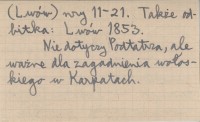 (Lwów) nry 11-21. Także od-
bitka: Lwów 1853.
Nie dotyczy Podtatrza, ale
ważne dla zagadnienia wołos-
kiego w Karpatach.